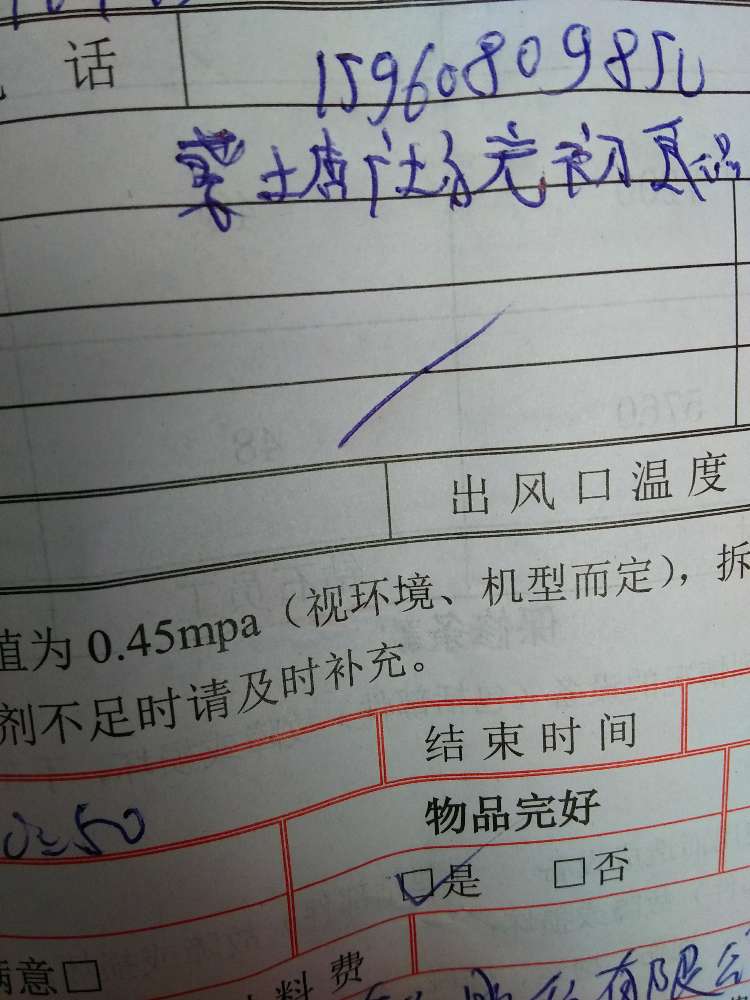 话 15960809850
出风口温度
值为 0.45mpa（视环境、机型而定），拆
剂不足时请及时补充。
结束时间
50 物品完好
☑是 □否
满意□ 料费
有限公